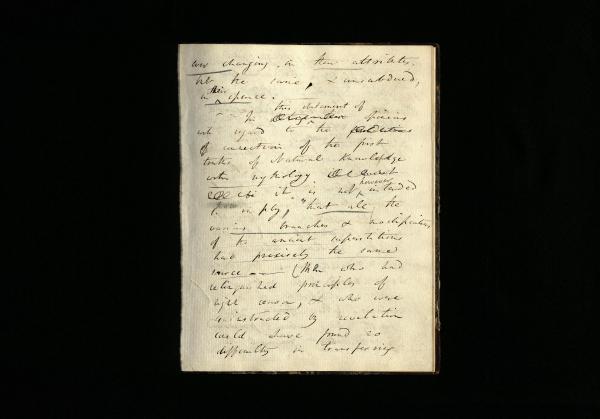 ever changing in their attributes,
but the same, & unsubdued,
in their essence.
this statement of
In opinions
with regard to the
of connection of the first
truths of Natural Knowledge
with mythology
it is not however intended
to imply, "that all the
various branches & modifications
of the ancient superstitions
had precisely the same
source — (Men who had
relinquished principles of
right reason, & who were
uninstructed by revelation
could have found no
difficulty in transferring